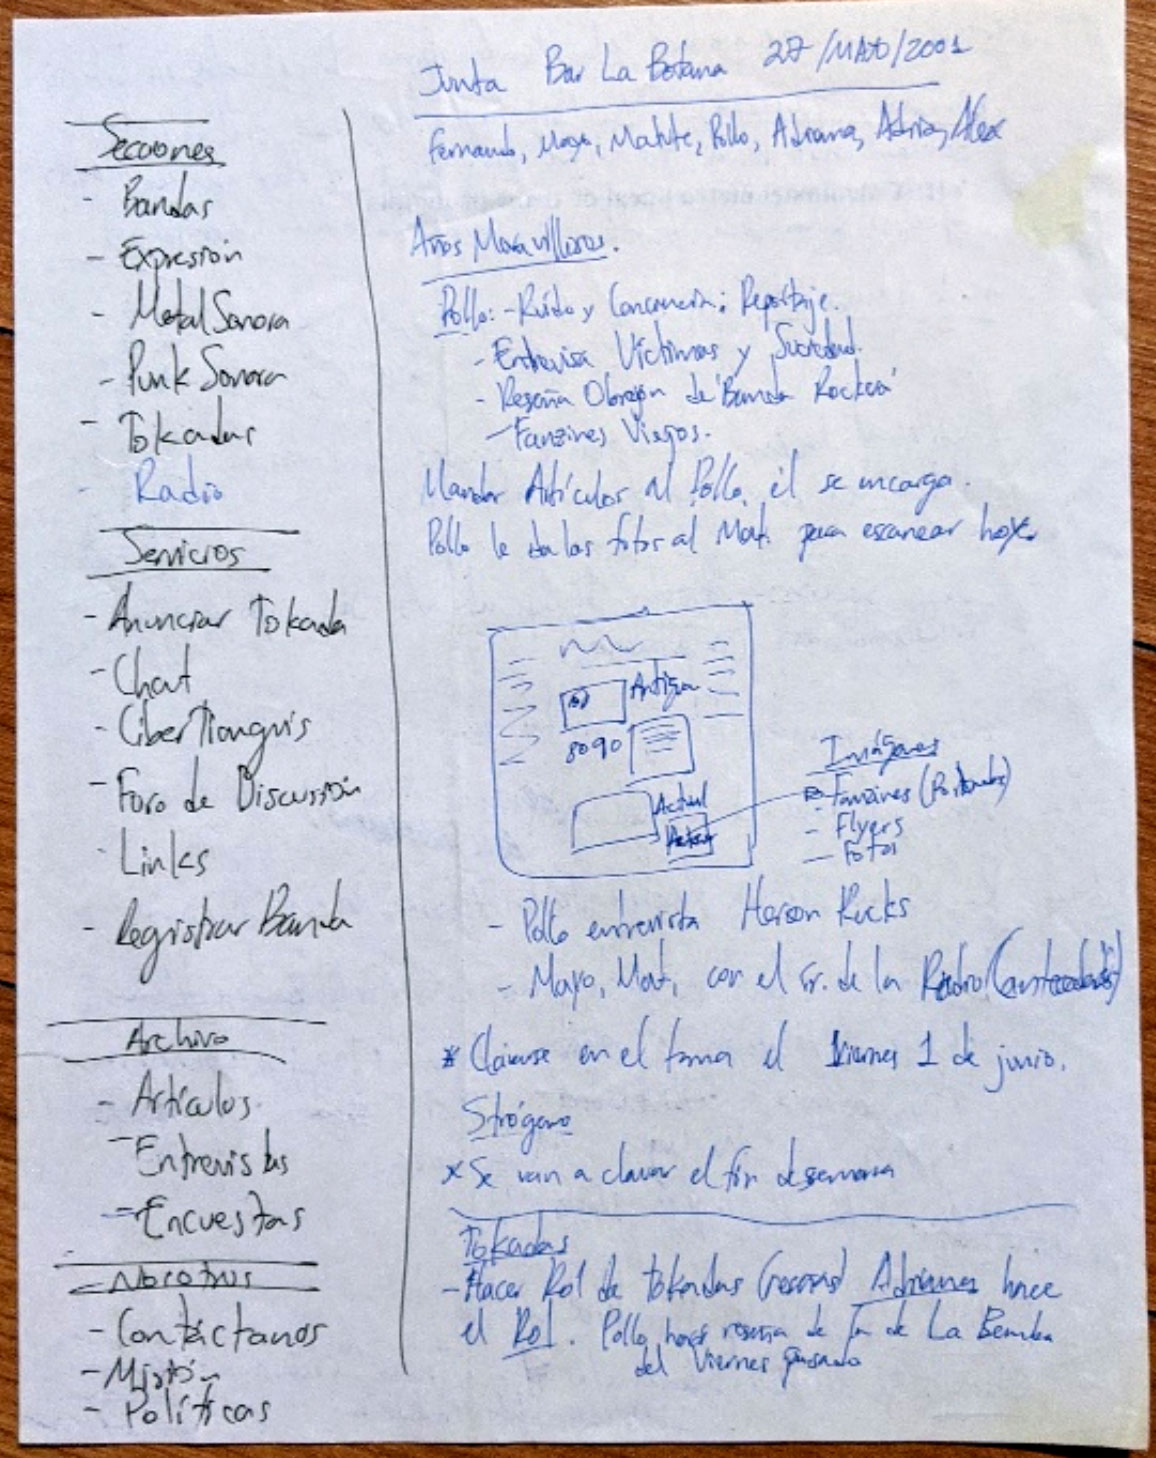 Junta Bar La Botana 27/MAYO/2001
Fernando, Mayo, Matute, Pollo, Adriana, Adria, Alex
Secciones
- Bandas
- Expresión
- Metal Sonora
- Punk Sonora
- Tokadas
- Radio
Servicios
- Anunciar Tokada
- Chat
- CiberTianguis
- Foro de Discusión
- Links
- Registrar Banda
Archivo
- Artículos
- Entrevistas
- Encuestas
Nosotros
- Contáctanos
- Misión
- Políticas
Años Maravillosos.
Pollo: - Ruido y ; Reportaje.
- Entrevista Víctimas y Suciedad.
- Reseña Obregón de 'Banda Rockera'
- Fanzines Viejos.
Mandar Artículos al Pollo, él se encarga.
Pollo le da las fotos al Mat. para escanear hoy.
Antigua
8090
Actual
Imágenes
- Fanzines (Portadas)
- Flyers
- Fotos
- Pollo entrevista Rucks
- Mayo, Mat, con el Sr. de la Radio (antecedentes)
* Clavarse en el tema el Viernes 1 de junio.
Strógano
x Se van a clavar el fin de semana
Tokadas
- Hacer Rol de tokadas Adriana hace
el Rol. Pollo hace reseña de de La Bemba
del Viernes pasado